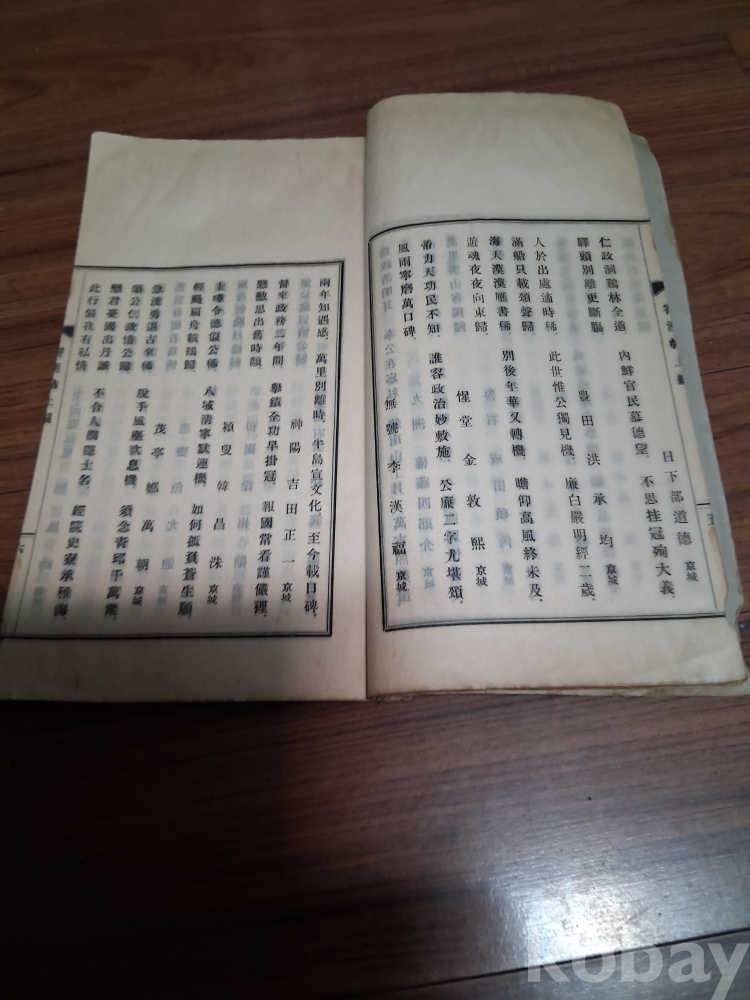 日下部道德 京城
仁政洞鷄林全道 內鮮官民慕德望 不思挂冠殉大義
驛頭別離更斷膓
豊田 洪承均 京城
人於出處適時稀 此世惟公獨見機 廉白嚴明經二歲
滿船只載頌聲歸
海天漠漠雁書稀 別後年華又轉機 瞻仰高風終未及
遊魂夜夜向東歸
惺堂 金敦熙 京城
當力天功民不知 誰客政治妙敷施 公廉二字尤堪頌
風雨寧磨萬口碑
無號 李漢福 京城
兩年知遇感 萬里別離時 半島宣文化 至今載口碑
神陽 吉田正一 京城
督來政務二年間 擧績全功早掛冠 報國常看謹儀裡
慇懃思出舊時顏
潁叟 韓昌洙 京城
圭璋令德似公稀 八域淸寧默運機 如何孤負蒼生願
輕颺扁舟載鶴歸
茂亭 鄭萬朝 京城
急流勇退古來稀 脫千風塵欲息機 須念靑邱千萬衆
經院史寮承雅誨
戀君憂國出丹誠 不合人間隱士名
此行偏我有私情
五
六
kobay